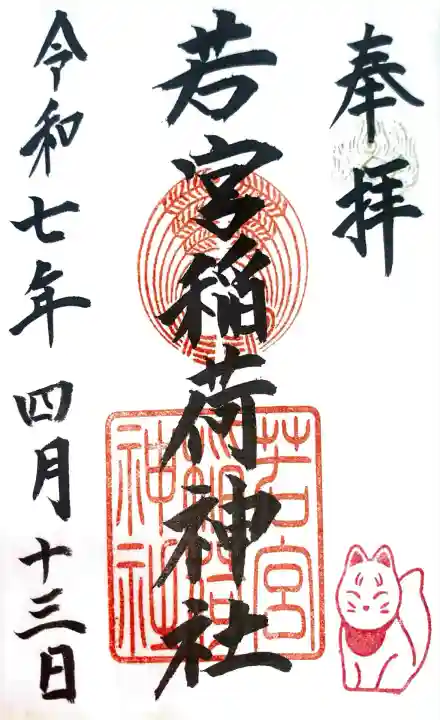 奉拝
若宮稲荷神社
若宮稲荷神社
令和七年四月十三日